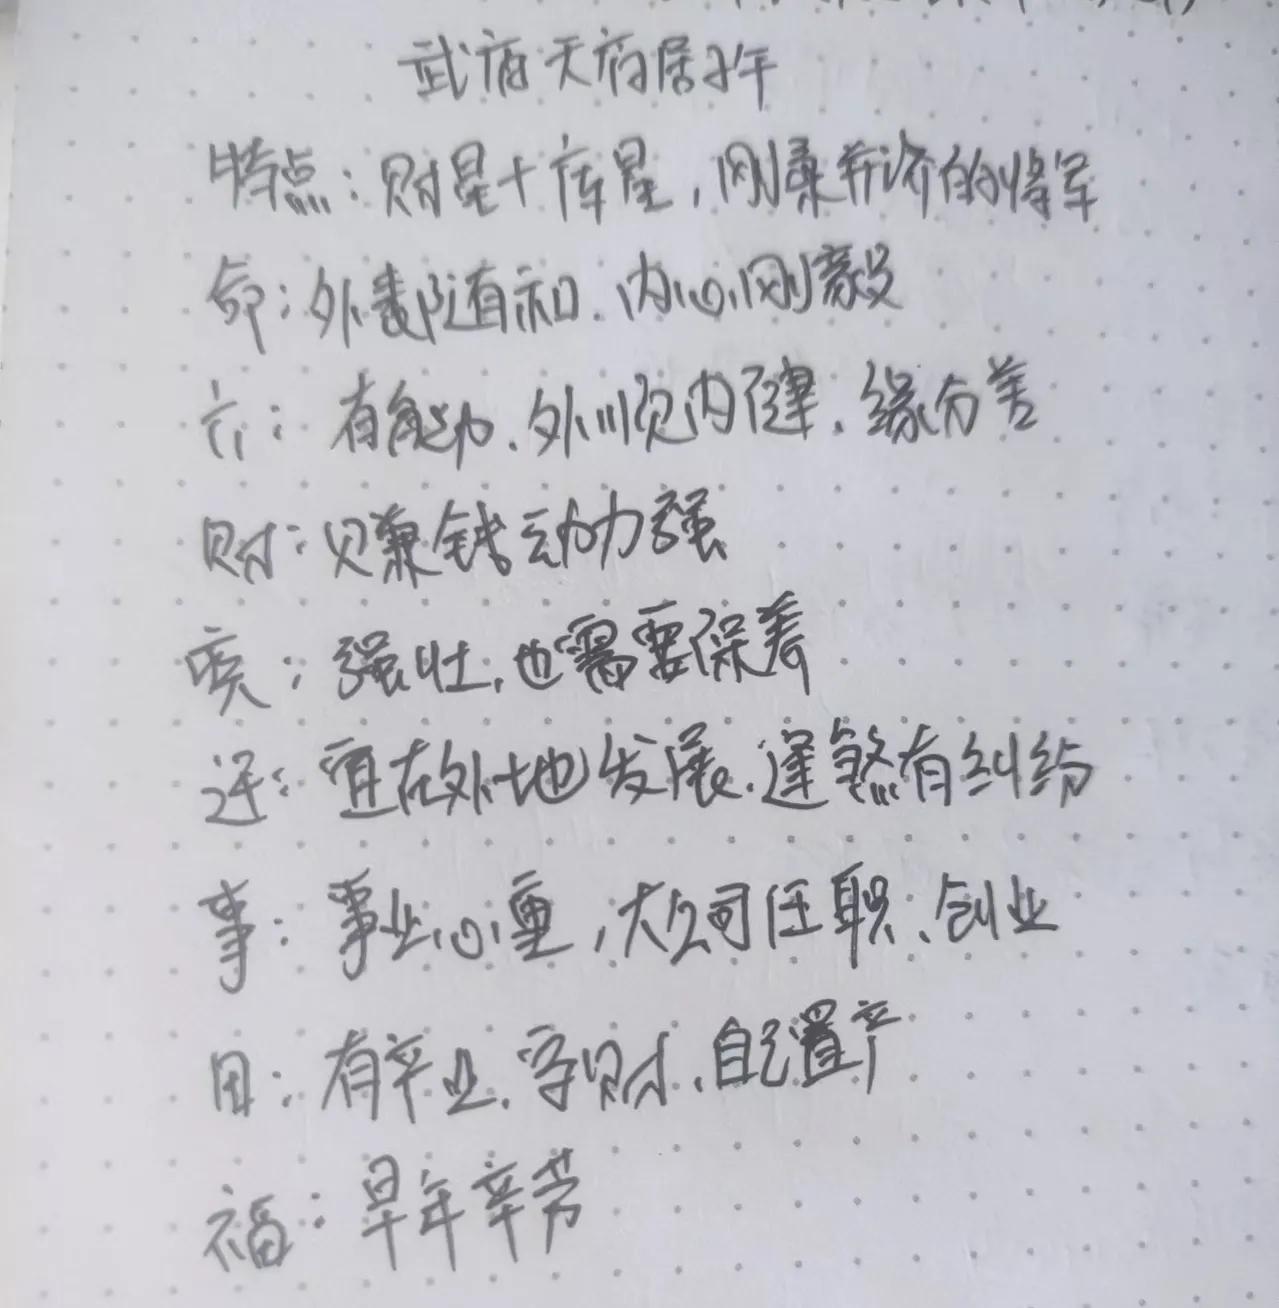 武府天府居子午
特点：财星+库星，刚柔并济的将军
命：外表随和、内心刚毅
六：有能力、外顺内健、缘分差
财：赚钱动力强
疾：强壮，也需要保养
迁：宜在外地发展、逢煞有纠纷
事：事业心重，大公司任职、创业
田：有产业、守财、自己置产
福：早年辛劳